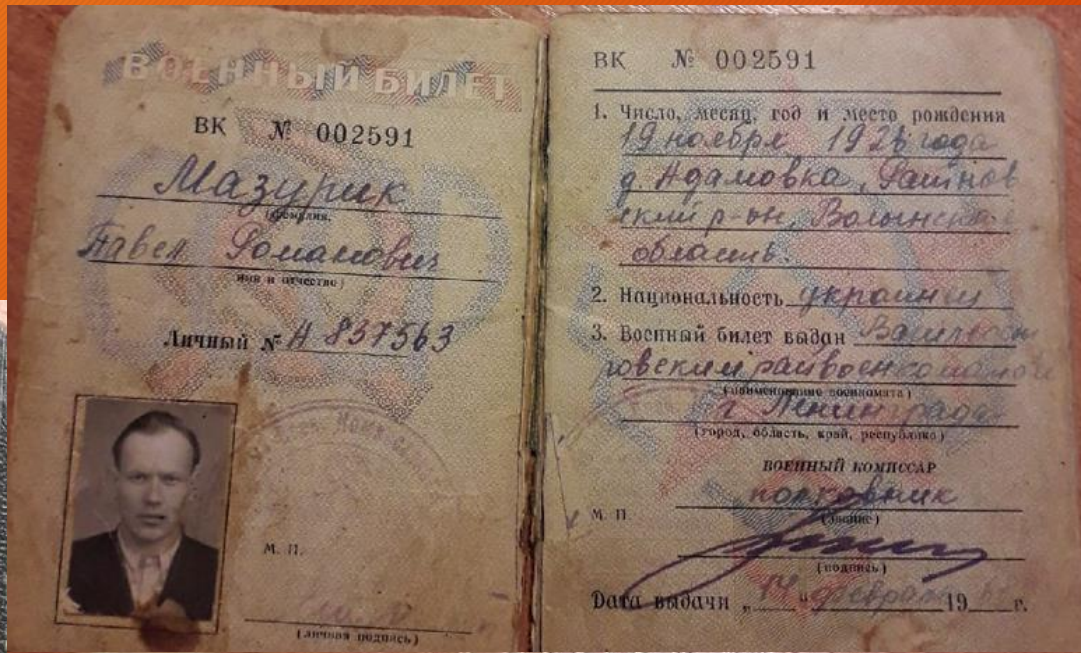 ВОЕННЫЙ БИЛЕТ
ВК № 002591
Мазурик
(фамилия)
Павел Романович
имя и отчество)
Личный № А 837563
М. П.
(личная подпись)
ВК № 002591
1. Число, месяц, год и место рождения
19 ноября 1926 года
д Адамовка,
ский р-он, Волынская
область.
2. Национальность украинец
3. Военный билет выдан
райвоенкоматом
(наименование военкомата)
г Ленинграда
(город, область, край, республика)
ВОЕННЫЙ КОМИССАР
полковник
М. П.
(звание)
(подпись)
Дата выдачи „14“ февраля 19 г.